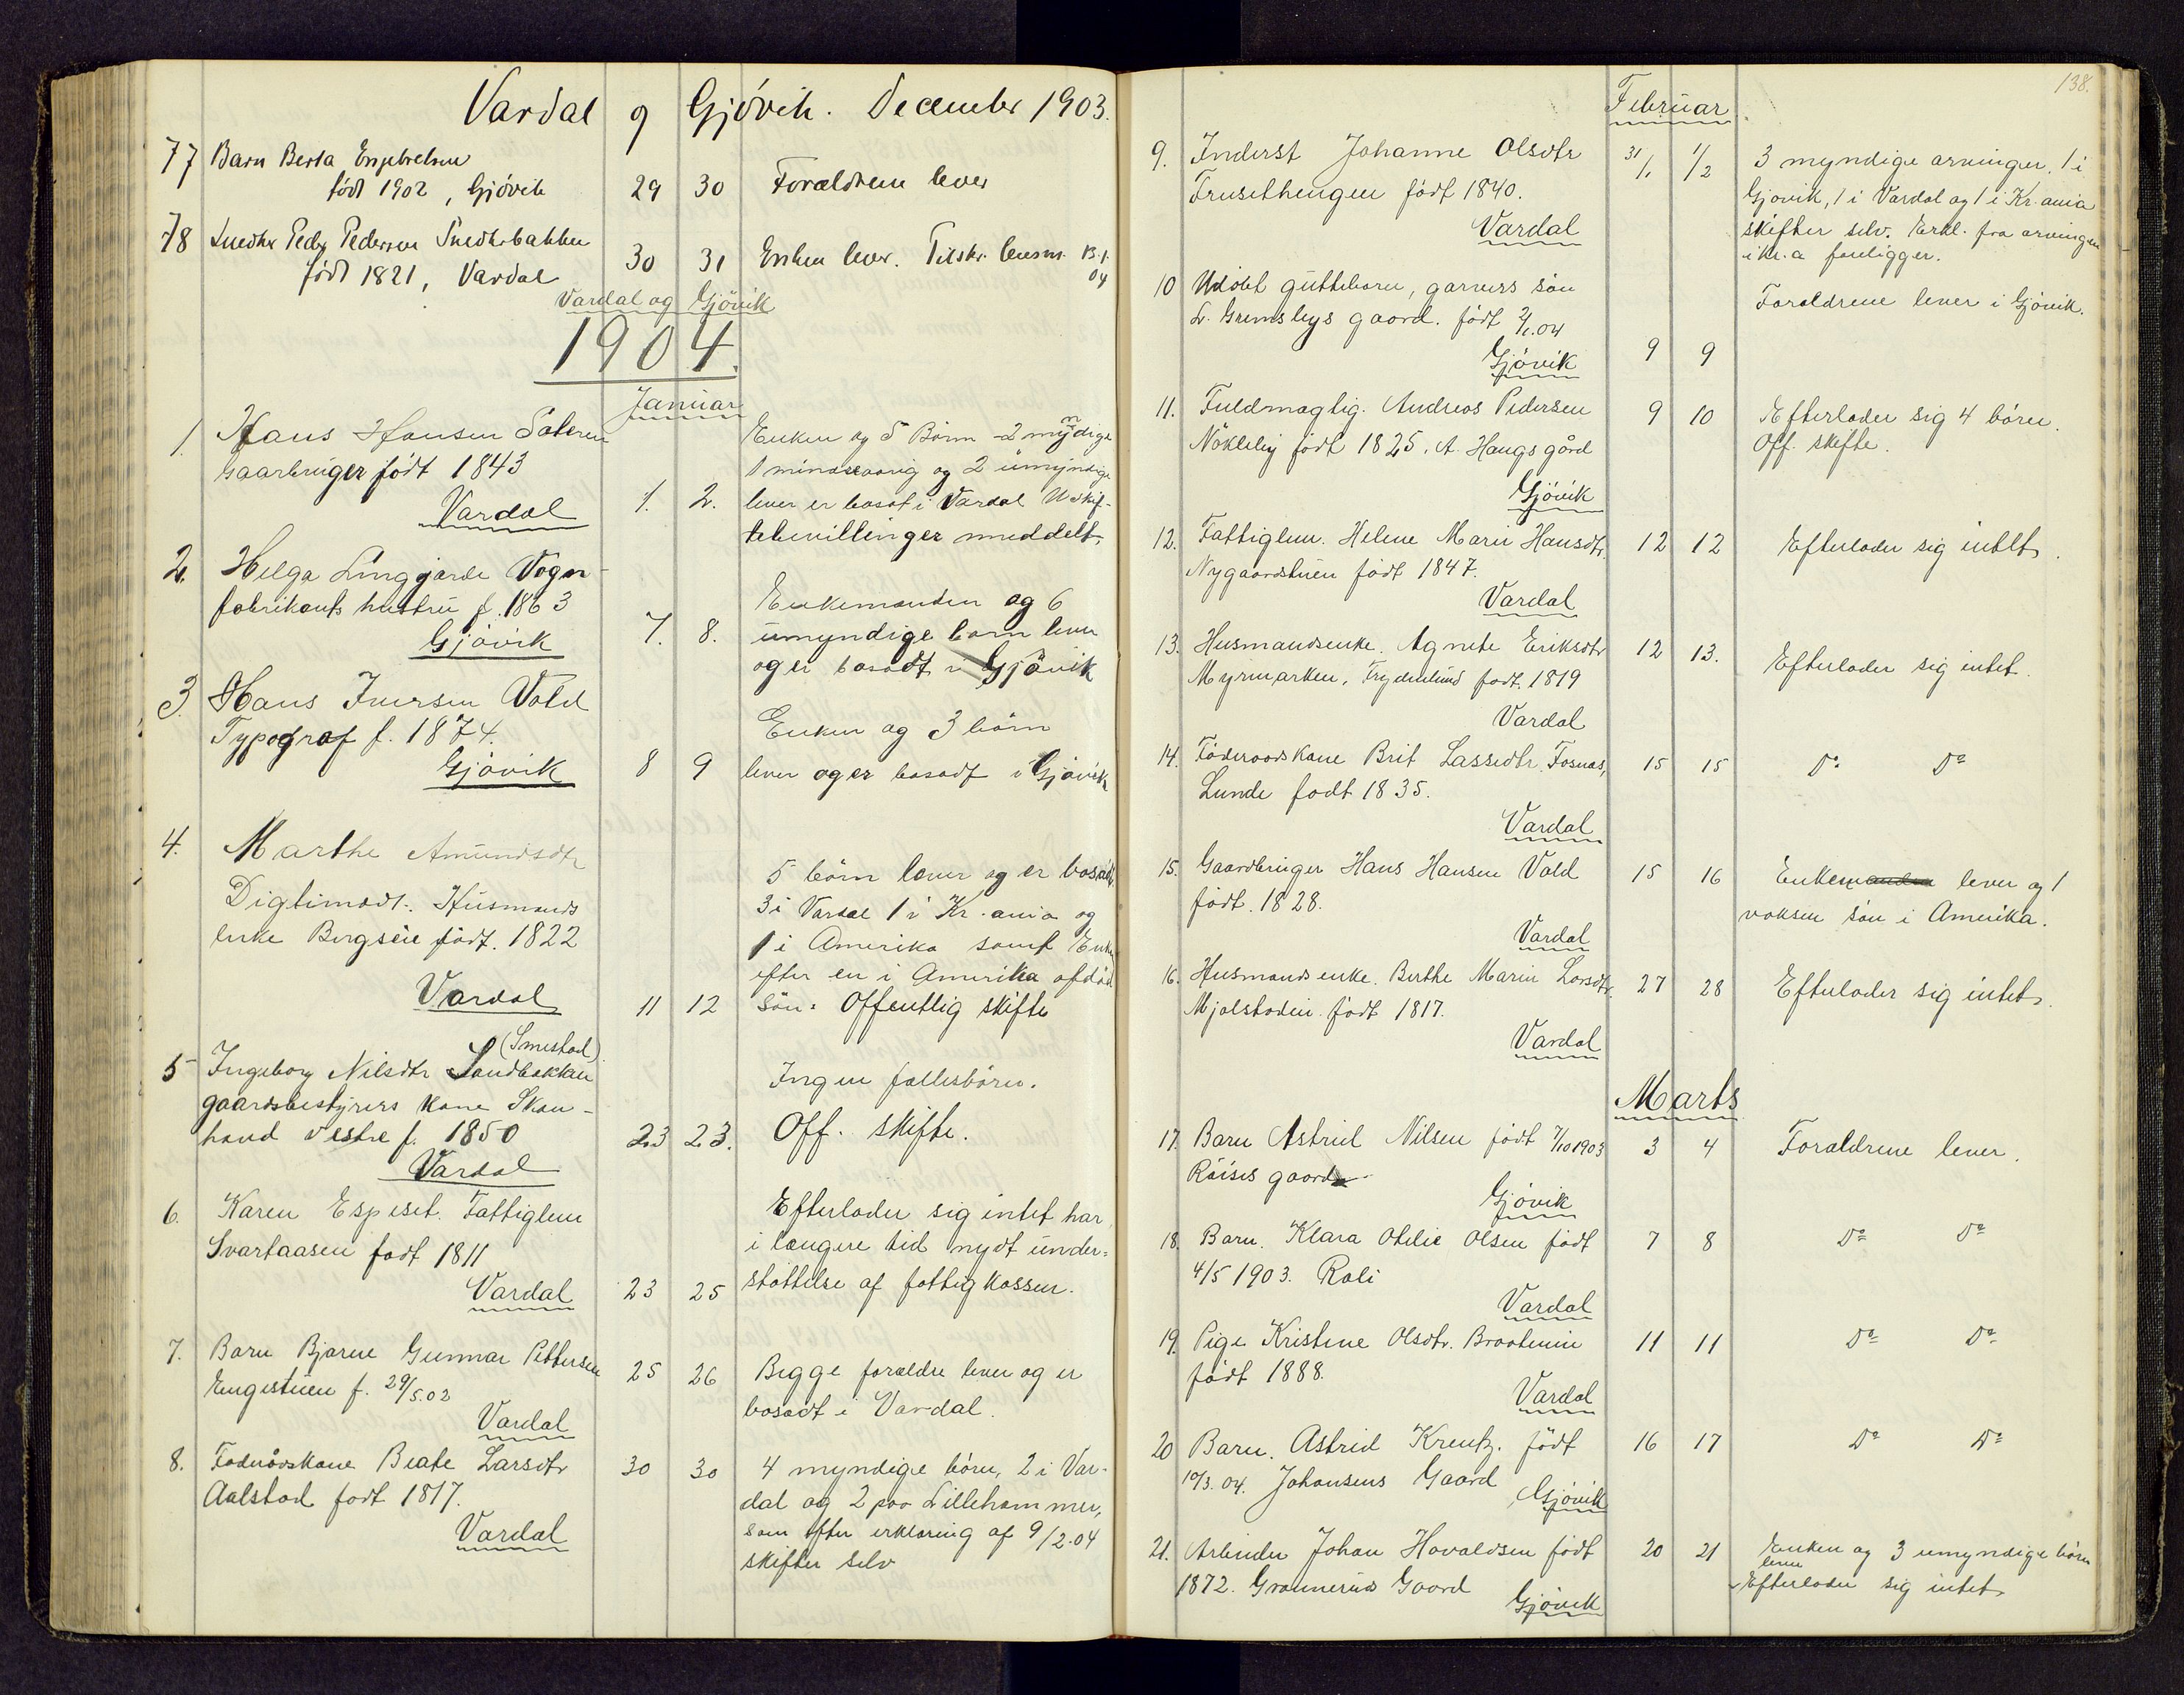 Vardal og Gjövik. December 1903.
77 Barn Berta Engebretsen
född 1902, Gjövik 29 30 Forældrene lever
78 Smedkr Peder Pedersen Smedsbakken
född 1821, Vardal 30 31 Enken lever. Tilskr. lensm. 13.1.04
Vardal og Gjövik
1904.
Januar
1. Hans Hansen
Gaarbruger född 1843
Vardal 1. 2.
Enken og 5 Börn - 2 myndige
1 mindreaarig og 2 umyndige
lever er bosat i Vardal Uskif-
tebevillinger meddelt.
2. Helga Linggjarde Vogn-
fabrikants hustru f. 1863
Gjövik 7. 8.
Enkemanden og 6
umyndige barn lever
og er bosadt i Gjövik
3. Hans Iversen Vold
Typograf f. 1874.
Gjövik 8 9
Enken og 3 börn
lever og er bosadt i Gjövik
4. Marthe Amundsdtr
Digtimodt. Husmands
enke Bergseie född. 1822
Vardal 11 12
5 börn lever og er bosadt
3 i Vardal 1 i Kr.ania og
1 i Amerika samt Enken
efter en i Amerika afdöd
Sön: Offentlig skifte
(Smestad)
5 Ingeborg Nilsdtr Sandbakken
gaardsbestyrers kone Skon-
hovd vestre f. 1850
Vardal 23 23.
Ingen fællesbörn.
Off. skifte.
6. Karen Espeset. Fattiglem
Svartaasen født 1811
Vardal 23 25
Efterlader sig intet har
i længere tid nydt under=
støttelse af fattigkassen.
7. Barn Bjarne Gunnar Pettersen
Engestuen f. 29/5.02
Vardal 25 26
Begge forældre lever og er
bosadt i Vardal.
8. Foderådskone Beate Larsdtr
Aalstad født 1817.
Vardal 30 30
4 myndige börn, 2 i Var-
dal og 2 paa Lillehammer,
som efter erklæring af 9/2.04
skifter selv
138.
Februar
9. Inderst Johanne Olsdtr
Frusethengen född 1840.
Vardal 31/1 1/2
3 myndige arvinger. 1 i
Gjövik, 1 i Vardal og 1 i Kr.ania
skifter selv. Erkl. fra arvingen
i Kr.a foreligger.
10 Udöbt guttebarn, garvers sön
L. Gremsbys gaard. född 2/1.04
Gjövik 9 9
Forældrene lever i Gjövik.
11. Fuldmægtig. Andreas Pedersen
Nökleby född 1825. A. Haugs gård
Gjövik 9 10
Efterlader sig 4 börn.
Off. skifte.
12. Fattiglem. Helene Marie Hansdtr
Nygaardstuen född 1847.
Vardal 12 12 Efterlader sig intet.
13. Husmandsenke. Agnete Eriksdtr
Myrmarken, Frydenlund född 1819
Vardal 12 13. Efterlader sig intet.
14. Föderaadskone Brit Lassedtr. Fosnæs,
Lunde född 1835.
Vardal 15 15 Do Do
15. Gaardbruger Hans Hansen Vold
född. 1828.
Vardal 15 16
Enkemanden lever og 1
voksen sön i Amerika.
16. Husmandsenke. Berthe Marie Larsdtr.
Mjølstadeie. född 1817.
Vardal 27 28 Efterlader sig intet.
Marts
17. Barn Astrid Nilsen född 7/10 1903
Röises gaard
Gjövik 3 4 Forældrene lever.
18. Barn. Klara Otelie Olsen född
4/5 1903. Roli
Vardal 7 8 Do Do
19. Pige Kristine Olsdtr. Braateneie
född 1888.
Vardal 11 11 Do Do
20 Barn. Astrid Kreutz. född
10/3.04. Johansens Gaard
Gjövik 16 17 Do Do
21. Arbeider Johan Hovaldsen född
1872. Grannerüds Gaard
Gjövik 20 21
Enken og 3 umyndige börn
lever
Efterlader sig intet